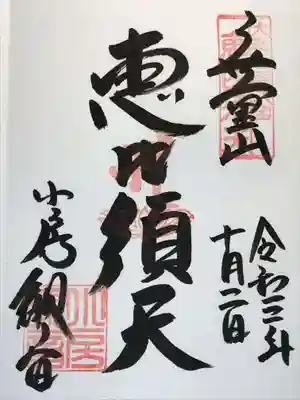 無量山
恵比須天
令和三年
十月二日
小尾観音